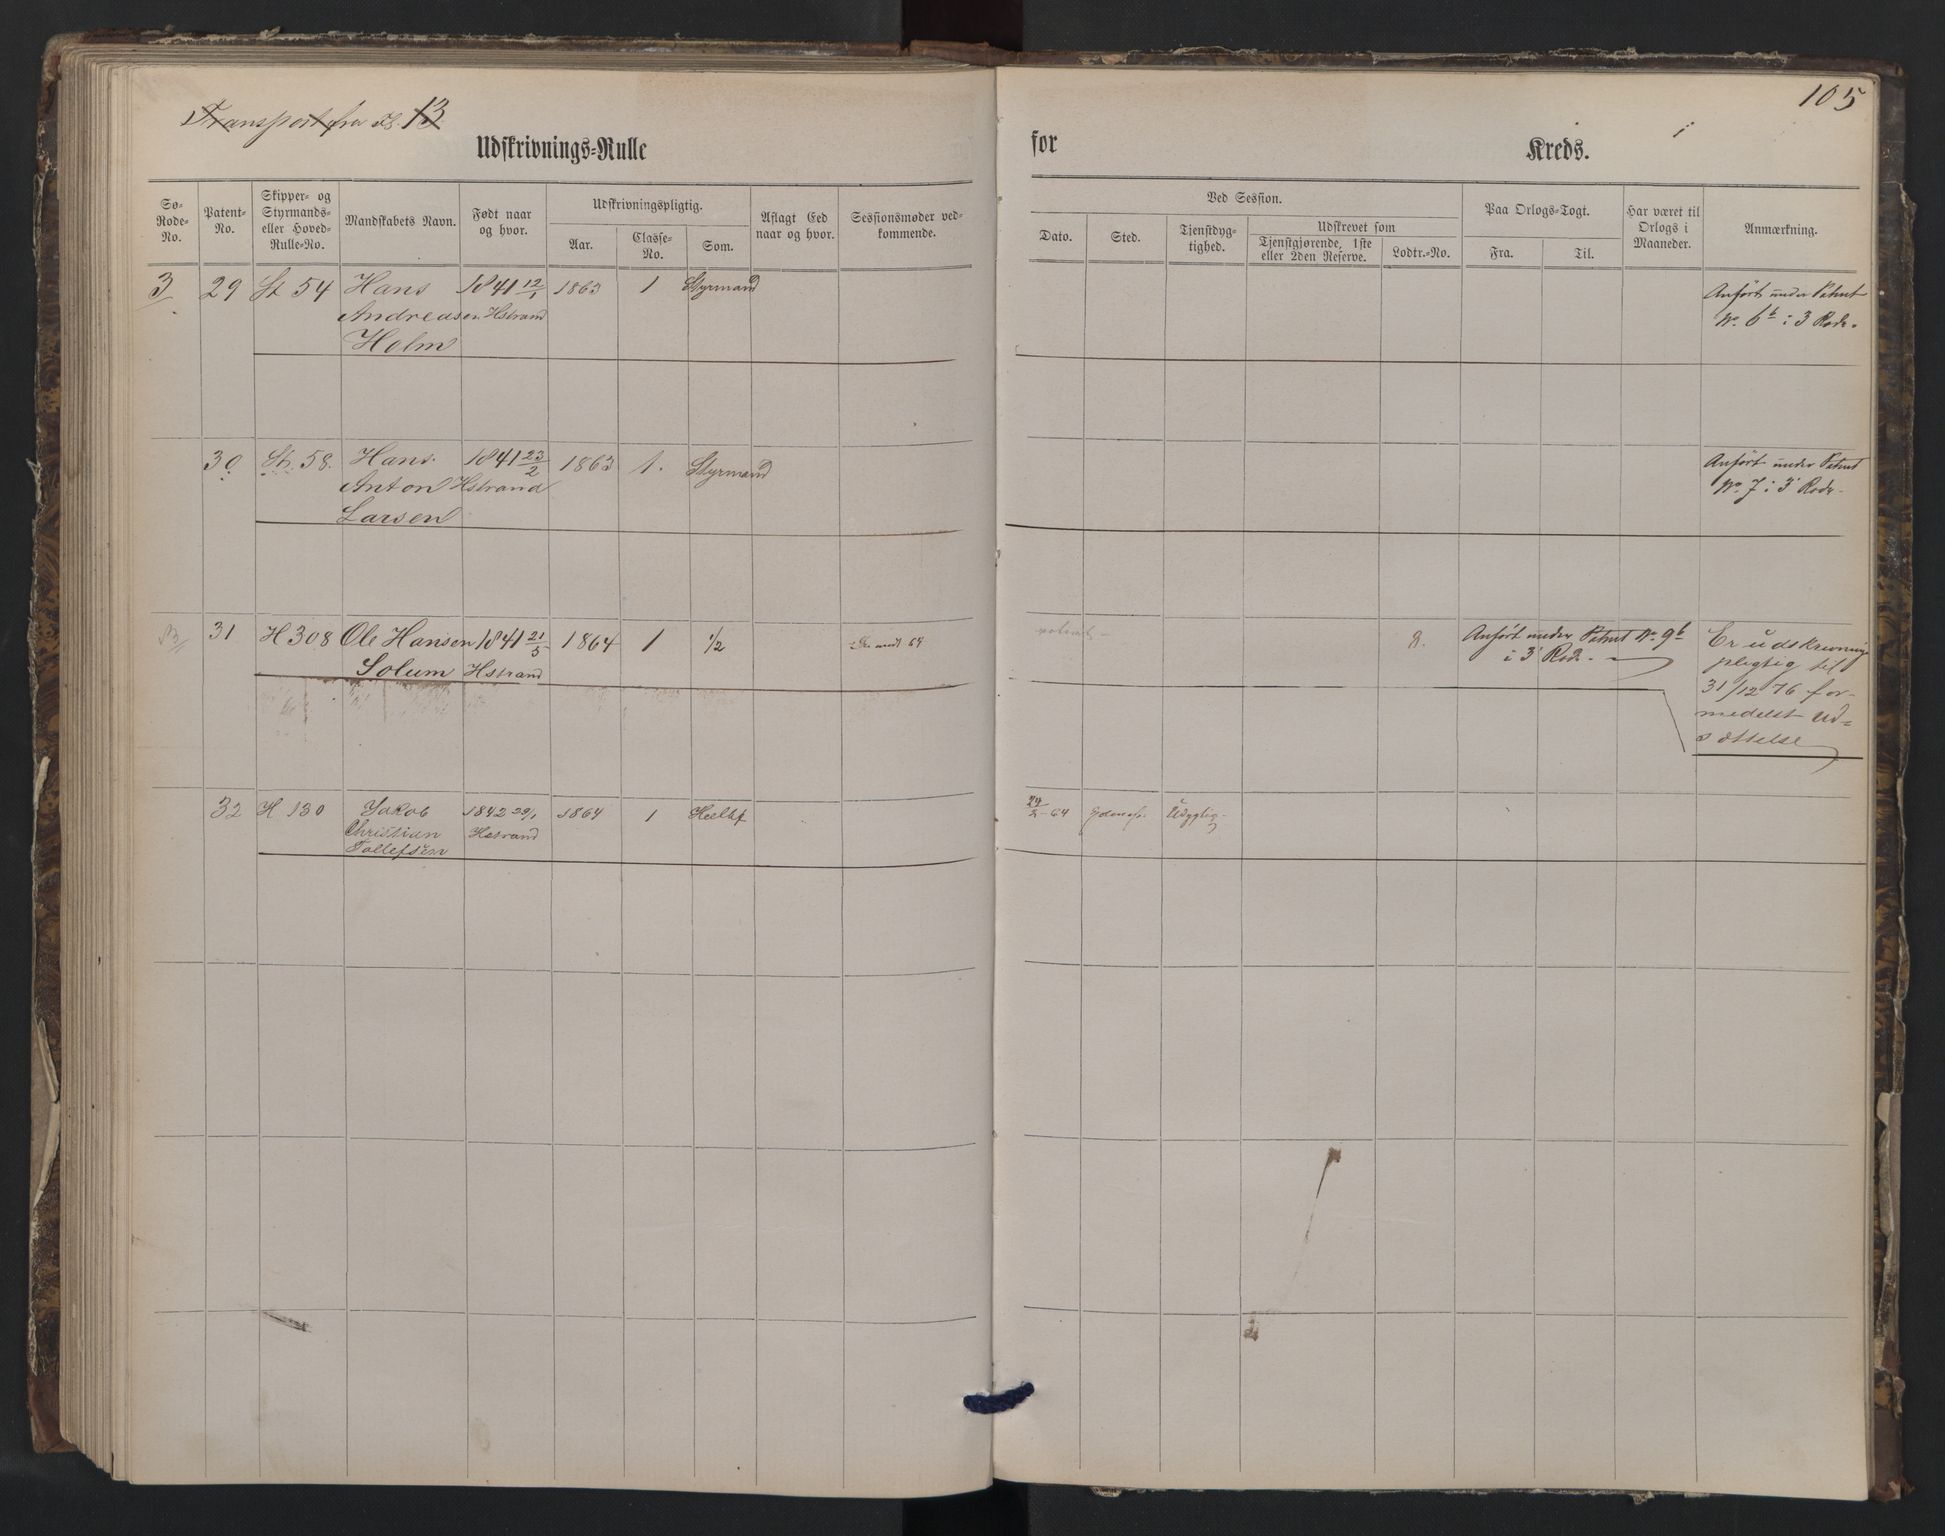 Transport fra
13
105
Udskrivnings-Rulle
for
i
Kreds.
Sø-Rode-No.
Patent-No.
Skipper- og Styrmands- eller Hoved-Rulle-No.
Mandskabets Navn.
Født naar og hvor.
Udskrivningspligtig.
Aar.
Classe-No.
Som.
Aflagt Eed naar og hvor.
Sessionsmøder vedkommende.
Ved Session.
Dato.
Sted.
Tjenstdygtighed.
Udskrevet som
Tjenstgjørende, 1ste eller 2den Reserve.
Lodtr.-No.
Paa Orlogs-Togt.
Fra.
Til.
Har været til Orlogs i Maaneder.
Anmærkning.
3 29 St 54 Hans 1841 12/1 1863 1 Styrmand
Andreasen Hstrand
Holm
Anført under Patent
No. 6b i 3 Rode.
30 St. 58. Hans 1841 23/2 1863 1. Styrmand
Anton Hstrand
Larsen
Anført under Patent
No. 7 i 3 Rode.
31 H 308 Ole Hansen 1841 21/5 1864 1 1/2
Solum Hstrand
8. Anført under Patent No. 9b
i 3 Rode.
Er udskrivning
pligtig til
31/12 76 for-
medelst Ud-
sættelse
32 H 130 Jakob 1842 29/1 1864 1 Heelbf
Christian Hstrand
Tollefsen
24/2 - 64 Udygtig.